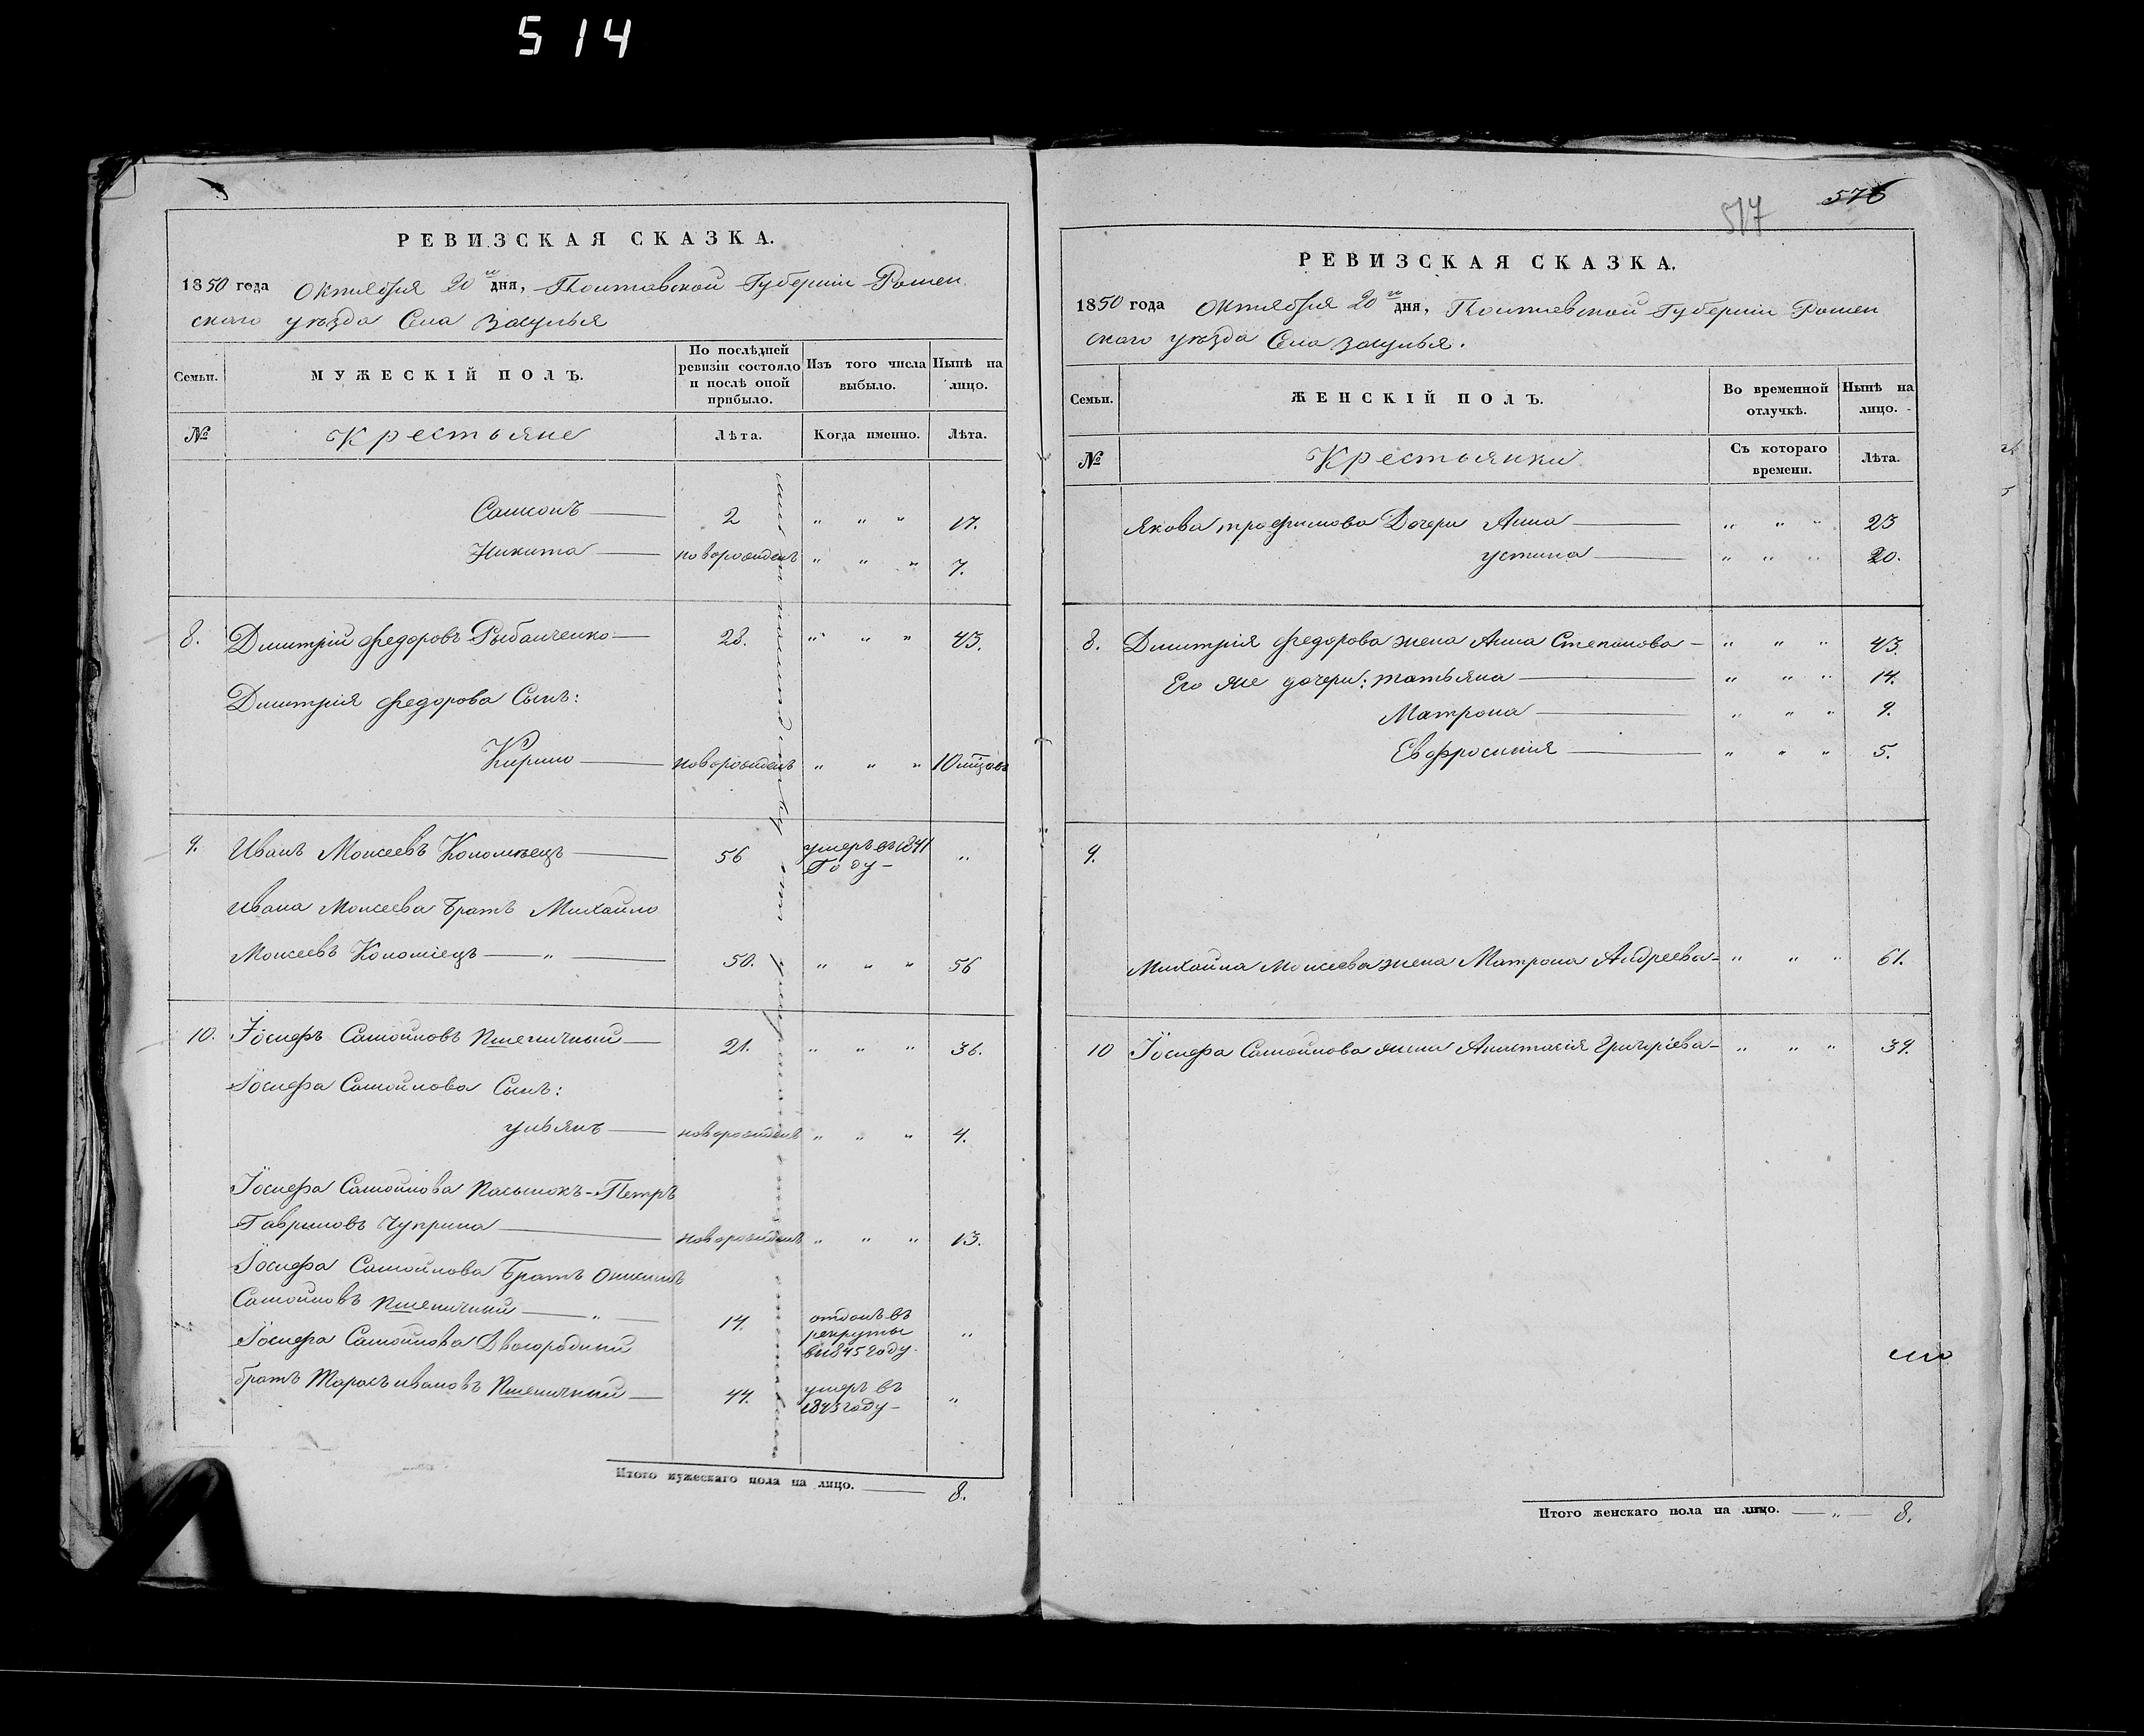 514
РЕВИЗСКАЯ СКАЗКА.
1850 года Октября 20го дня, Полтавской Губерніи Ромен
скаго уѣзда Села Засулья
Семьи. МУЖЕСКІЙ ПОЛЪ. По послѣдней ревизіи состояло и послѣ оной прибыло. Изъ того числа выбыло. Нынѣ на лицо.
№ Крестьяне Лѣта. Когда именно. Лѣта.
Самсонъ — 2 „ „ „ 17.
Никита — новорожденъ „ „ „ 7.
8. Дмитрій Федоровъ Рыбалченко — 28. „ „ „ 43.
Дмитрія Федорова Сынъ:
Кирило — новорожденъ „ „ „ 10 
9. Иванъ Моисеевъ Коломѣецъ — 56 умеръ въ 1841 Году — „
Ивана Моисеева Братъ Михайло
Моисеевъ Коломіецъ — „ — 50. „ „ „ 56
10. Іосифъ Самойловъ Пшеничный — 21. „ „ „ 36.
Іосифа Самойлова Сынъ:
Ульянъ — новорожденъ „ „ „ 4.
Іосифа Самойлова Пасынокъ — Петръ
Гавриловъ Чуприна — новорожденъ „ „ „ 13.
Іосифа Самойлова Братъ
Самойловъ Пшеничный — „ — 14. отданъ въ рекруты в 1845 году. „
Іосифа Самойлова Двоюродный
братъ Тарасъ Ивановъ Пшеничный — 44. умеръ въ 1843 году — „
Итого мужескаго пола на лицо. — 8.
576
517
РЕВИЗСКАЯ СКАЗКА.
1850 года Октября 20го дня, Полтавской Губерніи Ромен
скаго уѣзда Села Засулья.
Семьи. ЖЕНСКІЙ ПОЛЪ. Во временной отлучкѣ. Нынѣ на лицо.
№ Крестьянки Съ котораго времени. Лѣта.
Якова Трофимова Дочери Анна — „ „ „ 23
Устина — „ „ „ 20.
8. Дмитрія Федорова жена Анна Степанова — „ „ „ 43.
Его же дочери: Татьяна — „ „ „ 14.
Матрона — „ „ „ 9.
Евфросинія — „ „ „ 5.
9.
Михайла Моисеева жена Матрона Андреева — „ „ „ 61.
10 Іосифа Самойлова жена Анастасія Григоріева — „ „ „ 39.
Итого женскаго пола на лицо. — „ — 8.